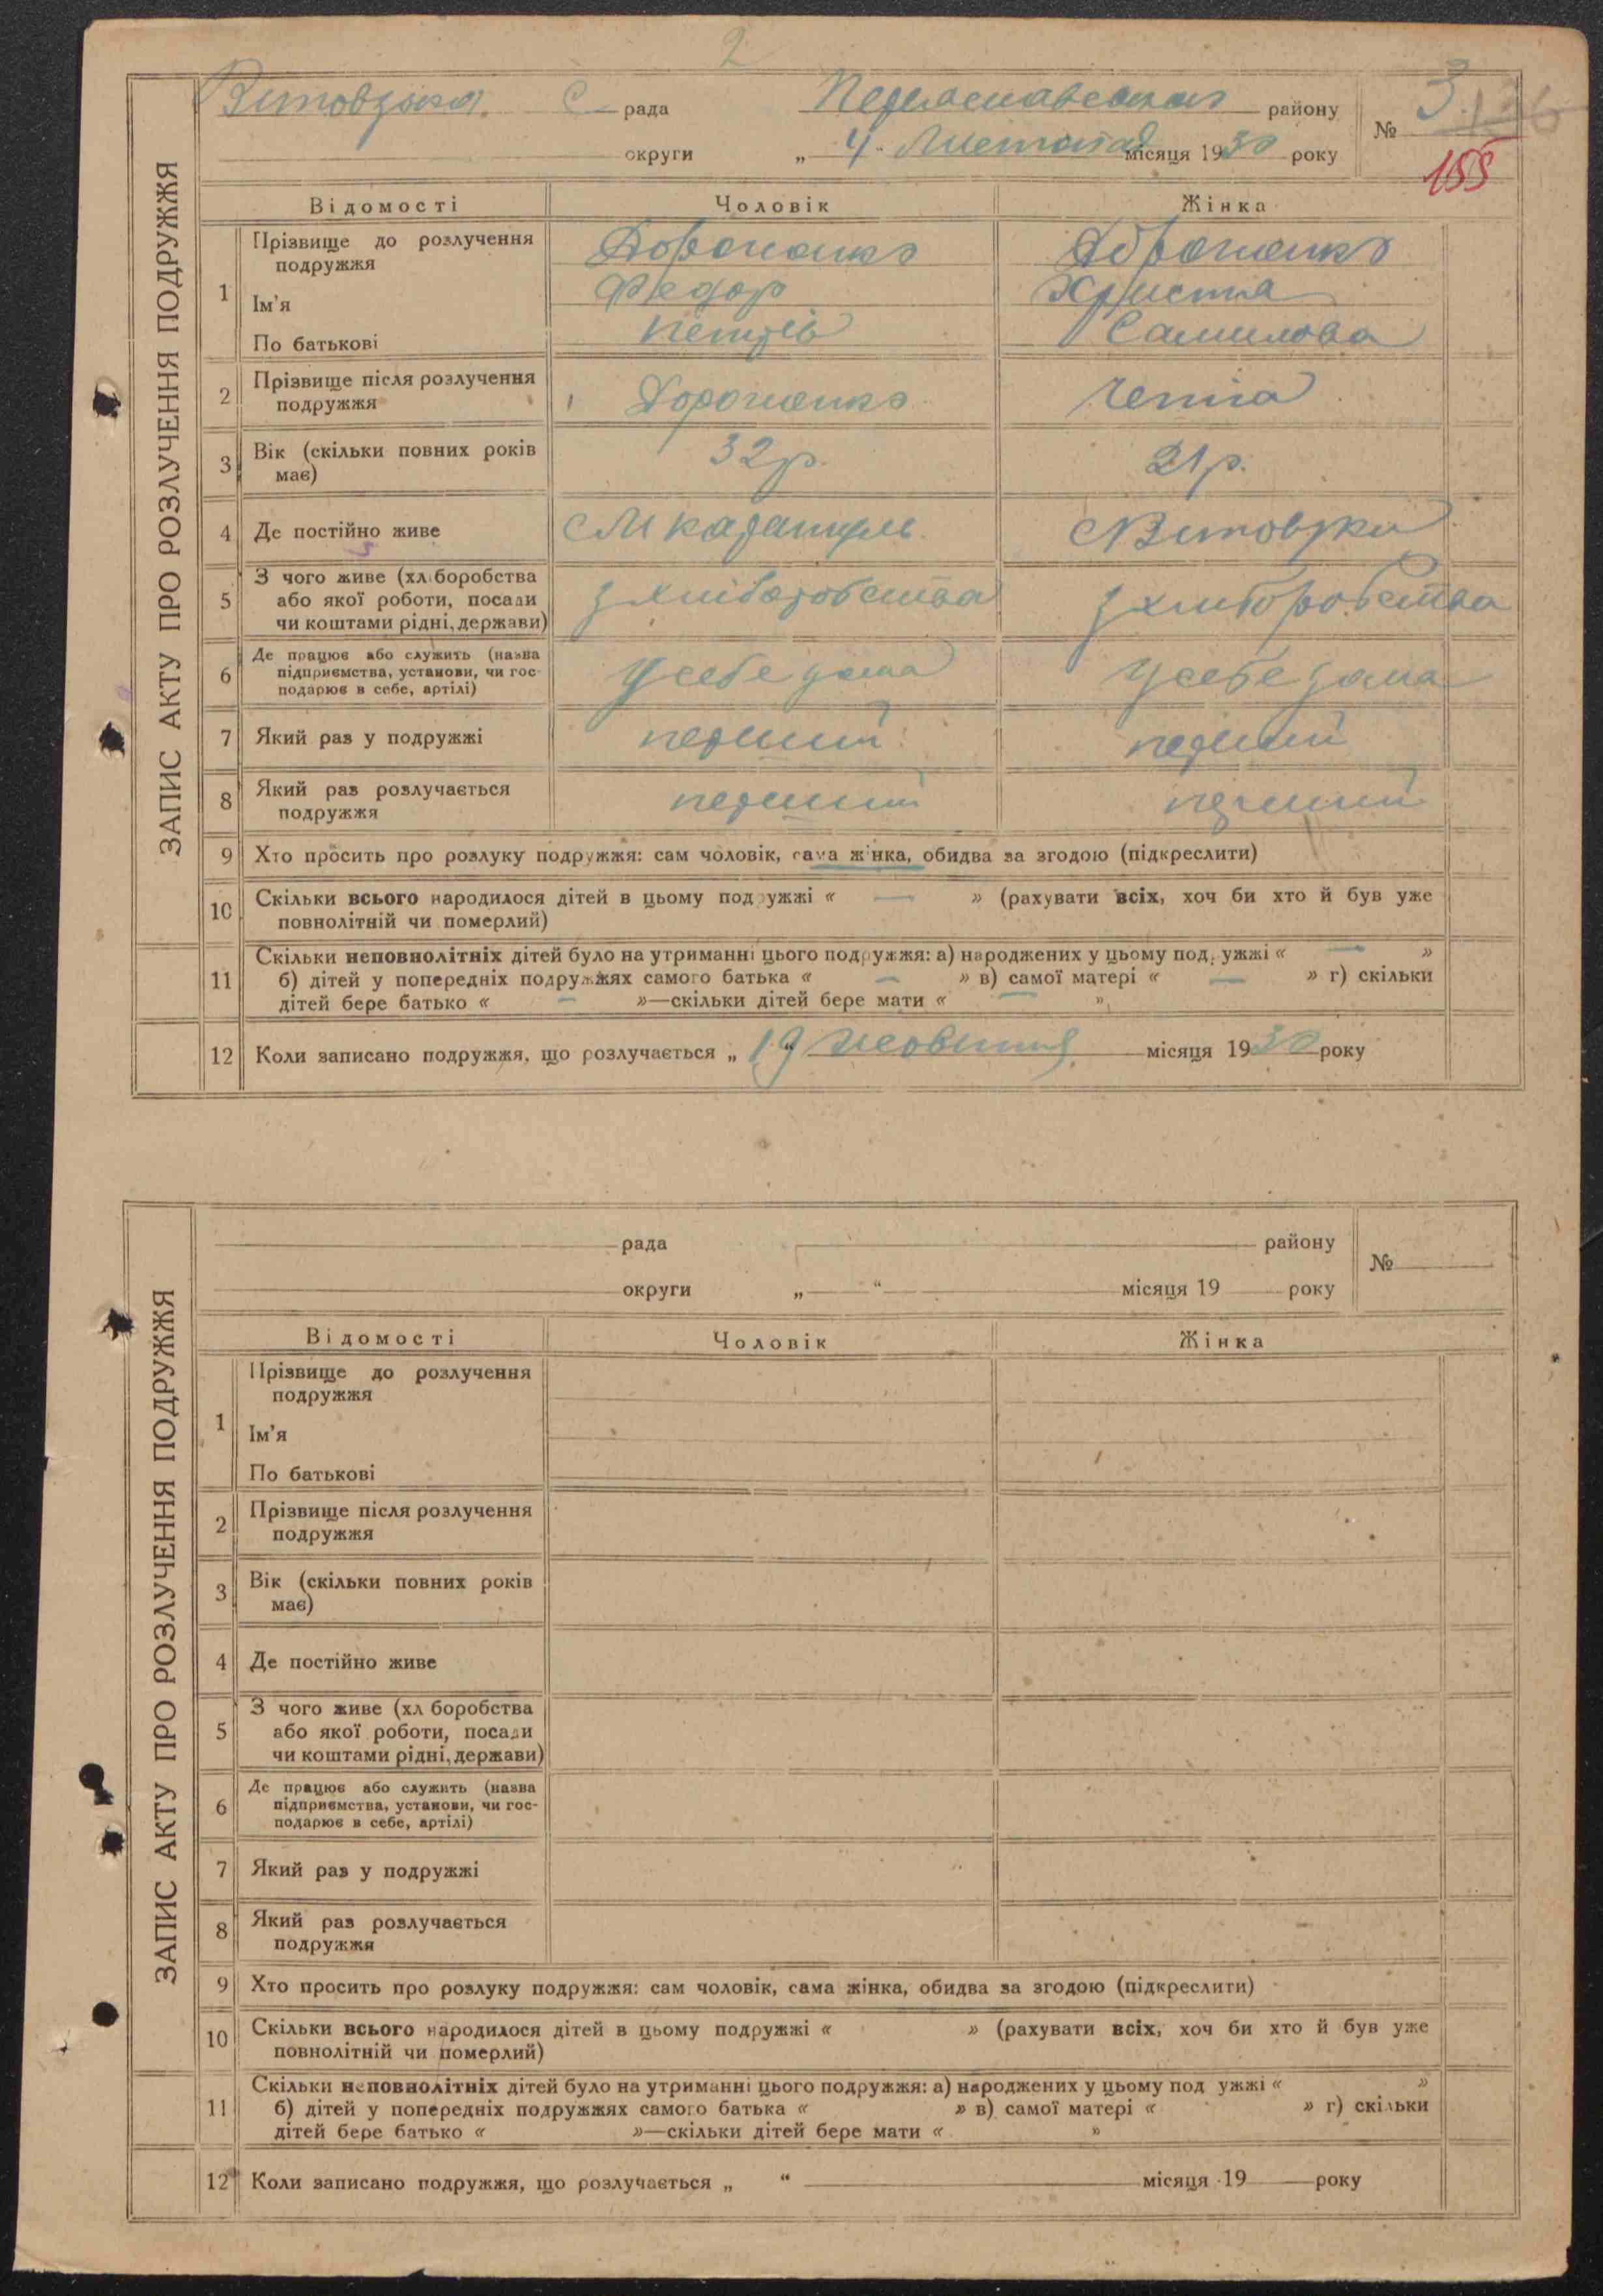 2
Витовзька С рада Переяславського району № 3.
округи „ 4 “ Листопад місяця 1930 року
155
ЗАПИС АКТУ ПРО РОЗЛУЧЕННЯ ПОДРУЖЖЯ
Відомості Чоловік Жінка
1 Прізвище до розлучення подружжя Дороженко Дороженко
Ім'я Федор Христа
По батькові Петрів Самилова
2 Прізвище після розлучення подружжя Дороженко
3 Вік (скільки повних років має) 32 р. 21 р.
4 Де постійно живе С М Каратуль. С Витовзки
5 З чого живе (хліборобства або якої роботи, посади чи коштами рідні, держави) з хліборобства з хліборобства
6 Де працює або служить (назва підприємства, установи, чи господарює в себе, артілі) у себе дома у себе дома
7 Який раз у подружжі перший перший
8 Який раз розлучається подружжя перший перший
9 Хто просить про розлуку подружжя: сам чоловік, сама жінка, обидва за згодою (підкреслити)
10 Скільки всього народилося дітей в цьому подружжі « — » (рахувати всіх, хоч би хто й був уже
повнолітній чи померлий)
11 Скільки неповнолітніх дітей було на утриманні цього подружжя: а) народжених у цьому подружжі « — »
б) дітей у попередніх подружжях самого батька « — » в) самої матері « — » г) скільки
дітей бере батько « — »—скільки дітей бере мати « — »
12 Коли записано подружжя, що розлучається „ 19 “ жовтня місяця 1930 року
ЗАПИС АКТУ ПРО РОЗЛУЧЕННЯ ПОДРУЖЖЯ
рада району №
округи „ “ місяця 19 року
Відомості Чоловік Жінка
1 Прізвище до розлучення
подружжя
Ім'я
По батькові
2 Прізвище після розлучення
подружжя
3 Вік (скільки повних років
має)
4 Де постійно живе
5 З чого живе (хл боробства
або якої роботи, посади
чи коштами рідні, держави)
6 Де працює або служить (назва
підприємства, установи, чи гос-
подарює в себе, артілі)
7 Який раз у подружжі
8 Який раз розлучається
подружжя
9 Хто просить про розлуку подружжя: сам чоловік, сама жінка, обидва за згодою (підкреслити)
10 Скільки всього народилося дітей в цьому подружжі « » (рахувати всіх, хоч би хто й був уже
повнолітній чи померлий)
11 Скільки неповнолітніх дітей було на утриманні цього подружжя: а) народжених у цьому под ужжі « »
б) дітей у попередніх подружжях самого батька « » в) самої матері « » г) скільки
дітей бере батько « »—скільки дітей бере мати « »
12 Коли записано подружжя, що розлучається „ “ місяця 19 року